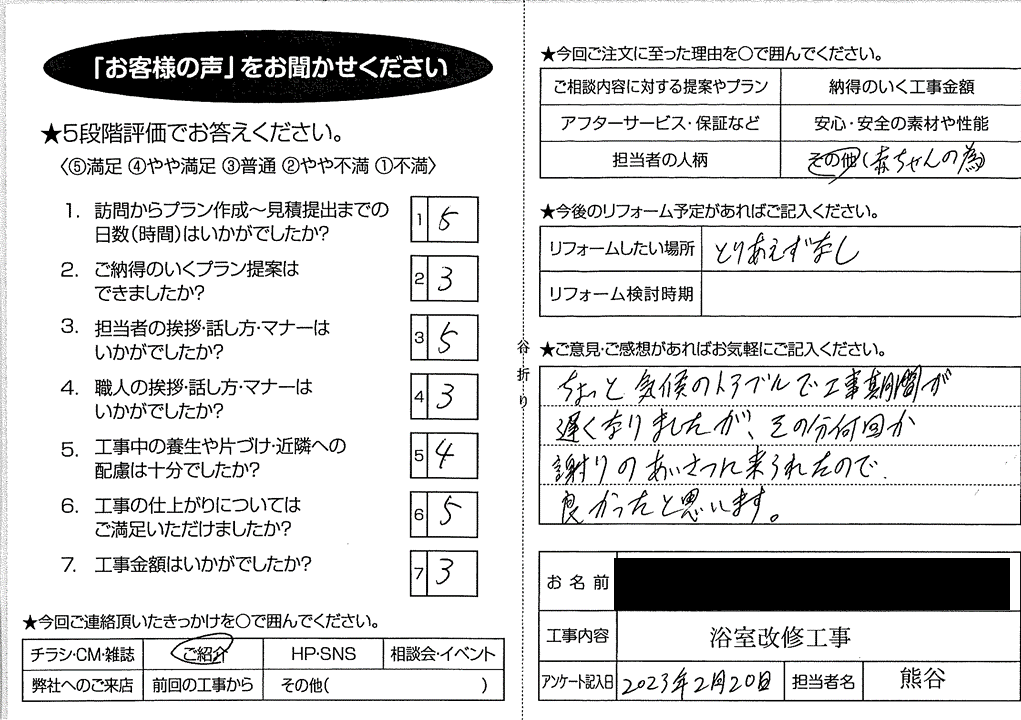 「お客様の声」をお聞かせください
★5段階評価でお答えください。
〈⑤満足 ④やや満足 ③普通 ②やや不満 ①不満〉
1. 訪問からプラン作成〜見積提出までの
日数(時間)はいかがでしたか?
1 5
2. ご納得のいくプラン提案は
できましたか?
2 3
3. 担当者の挨拶・話し方・マナーは
いかがでしたか?
3 5
4. 職人の挨拶・話し方・マナーは
いかがでしたか?
4 3
5. 工事中の養生や片づけ・近隣への
配慮は十分でしたか?
5 4
6. 工事の仕上がりについては
ご満足いただけましたか?
6 5
7. 工事金額はいかがでしたか?
7 3
★今回ご連絡頂いたきっかけを○で囲んでください。
チラシ・CM・雑誌 ご紹介 HP・SNS 相談会・イベント
弊社へのご来店 前回の工事から その他( )
谷折り
★今回ご注文に至った理由を○で囲んでください。
ご相談内容に対する提案やプラン 納得のいく工事金額
アフターサービス・保証など 安心・安全の素材や性能
担当者の人柄 その他(赤ちゃんの為)
★今後のリフォーム予定があればご記入ください。
リフォームしたい場所 とりあえずなし
リフォーム検討時期
★ご意見・ご感想があればお気軽にご記入ください。
ちょっと気候のトラブルで工事期間が
遅くなりましたが、その分何回か
謝りのあいさつに来られたので
良かったと思います。
お名前
工事内容 浴室改修工事
アンケート記入日 2023年2月20日 担当者名 熊谷